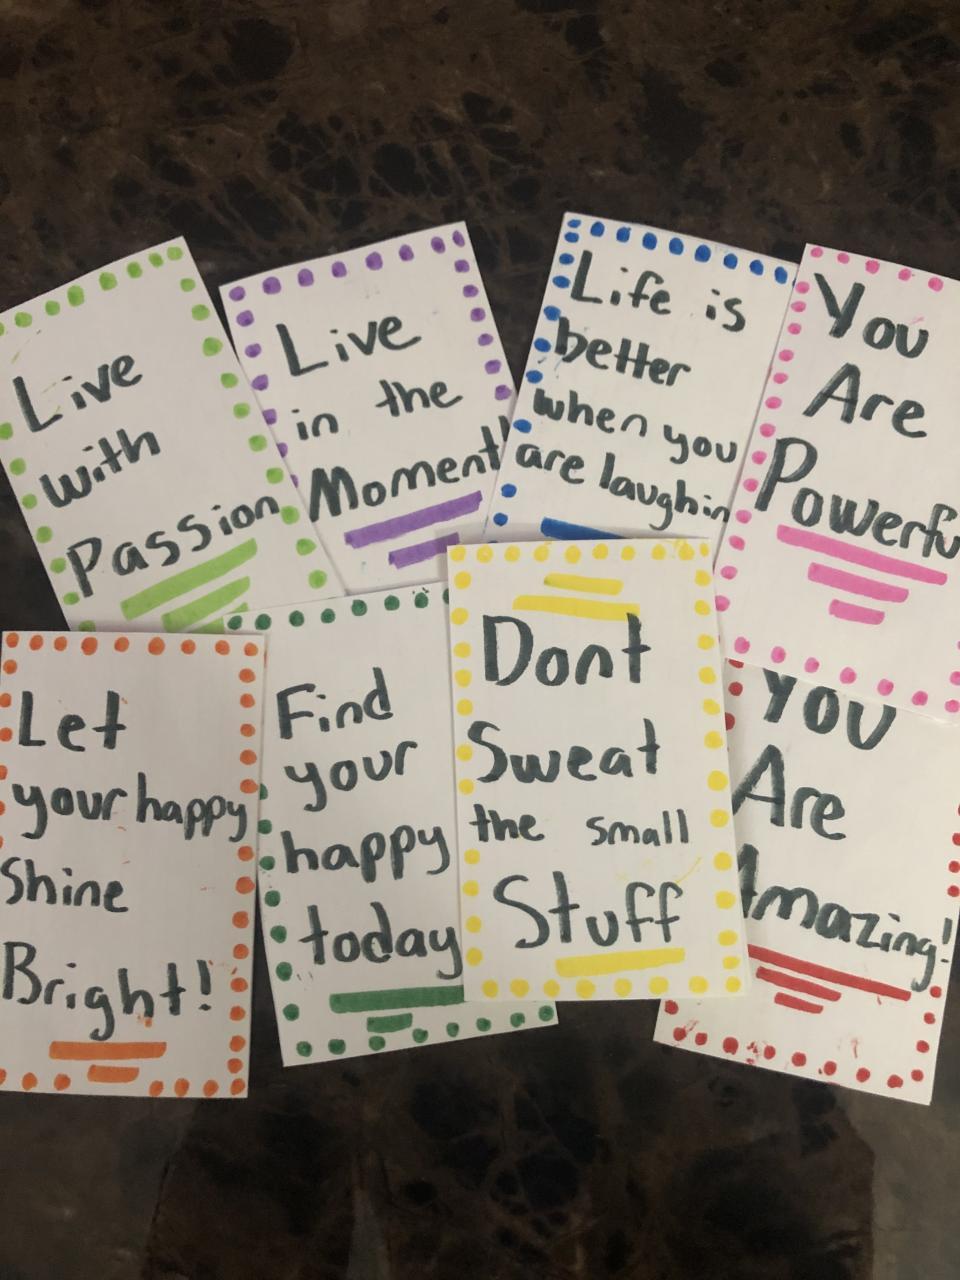 Live
with
Passion
Live
in the
Moment!
Life is
better
when you
are laughin
You
Are
Powerfu
Let
your happy
Shine
Bright!
Find
your
happy
today
Dont
Sweat
the small
Stuff
You
Are
Amazing!